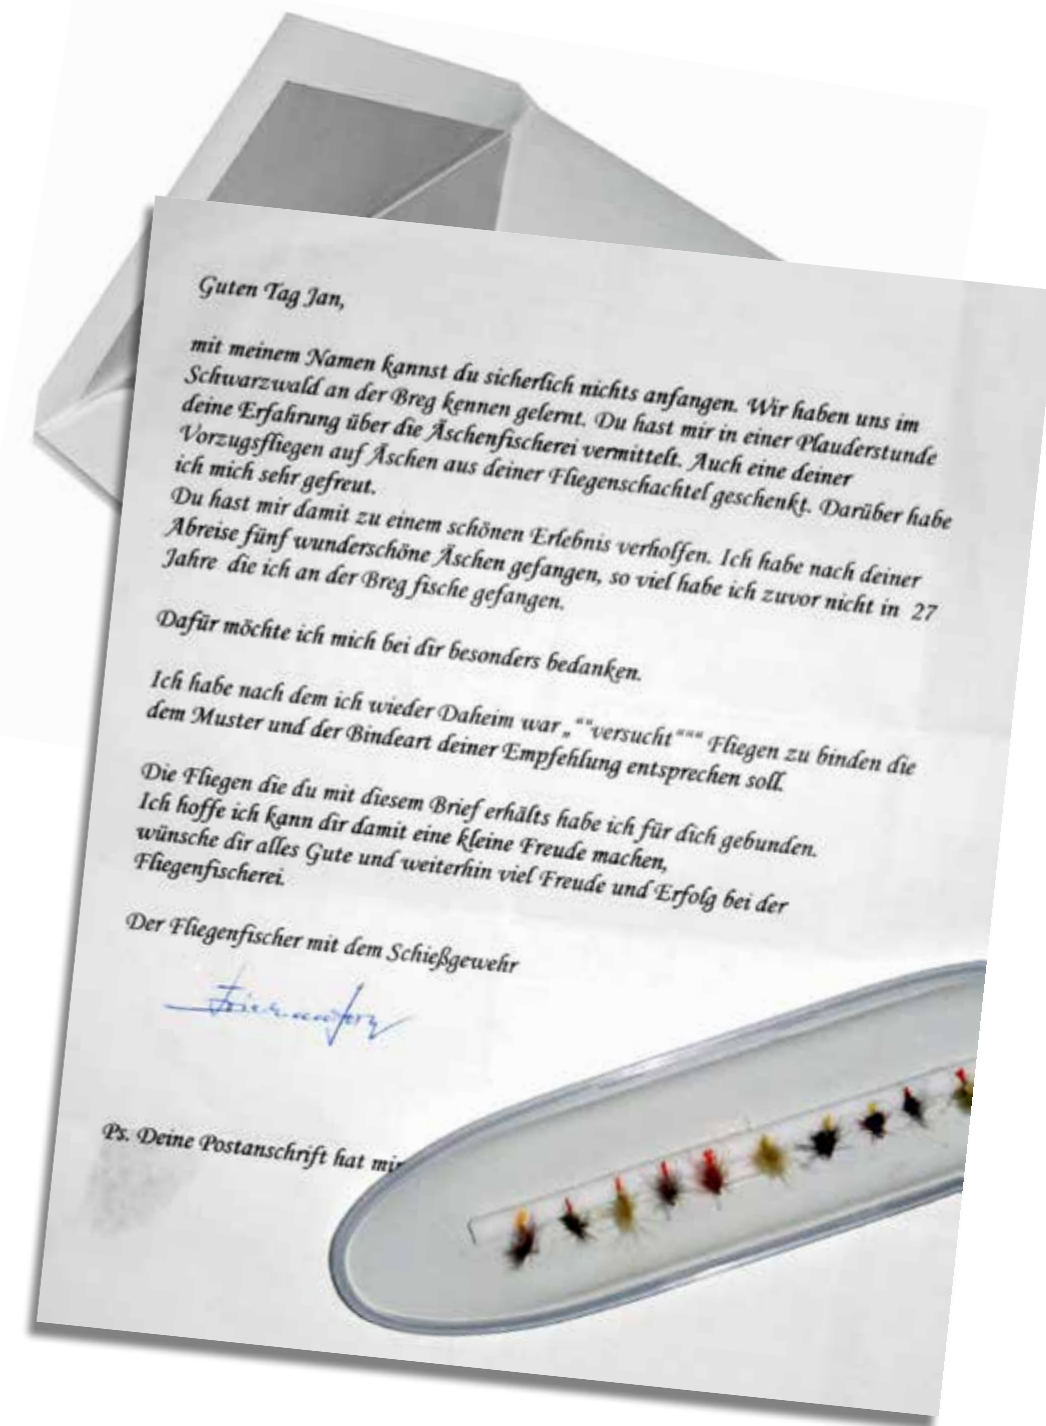 Guten Tag Jan,
mit meinem Namen kannst du sicherlich nichts anfangen. Wir haben uns im
Schwarzwald an der Breg kennen gelernt. Du hast mir in einer Plauderstunde
deine Erfahrung über die Äschenfischerei vermittelt. Auch eine deiner
Vorzugsfliegen auf Äschen aus deiner Fliegenschachtel geschenkt. Darüber habe
ich mich sehr gefreut.
Du hast mir damit zu einem schönen Erlebnis verholfen. Ich habe nach deiner
Abreise fünf wunderschöne Äschen gefangen, so viel habe ich zuvor nicht in 27
Jahre die ich an der Breg fische gefangen.
Dafür möchte ich mich bei dir besonders bedanken.
Ich habe nach dem ich wieder Daheim war „““versucht“““ Fliegen zu binden die
dem Muster und der Bindeart deiner Empfehlung entsprechen soll.
Die Fliegen die du mit diesem Brief erhälts habe ich für dich gebunden.
Ich hoffe ich kann dir damit eine kleine Freude machen,
wünsche dir alles Gute und weiterhin viel Freude und Erfolg bei der
Fliegenfischerei.
Der Fliegenfischer mit dem Schießgewehr
Ps. Deine Postanschrift hat mir